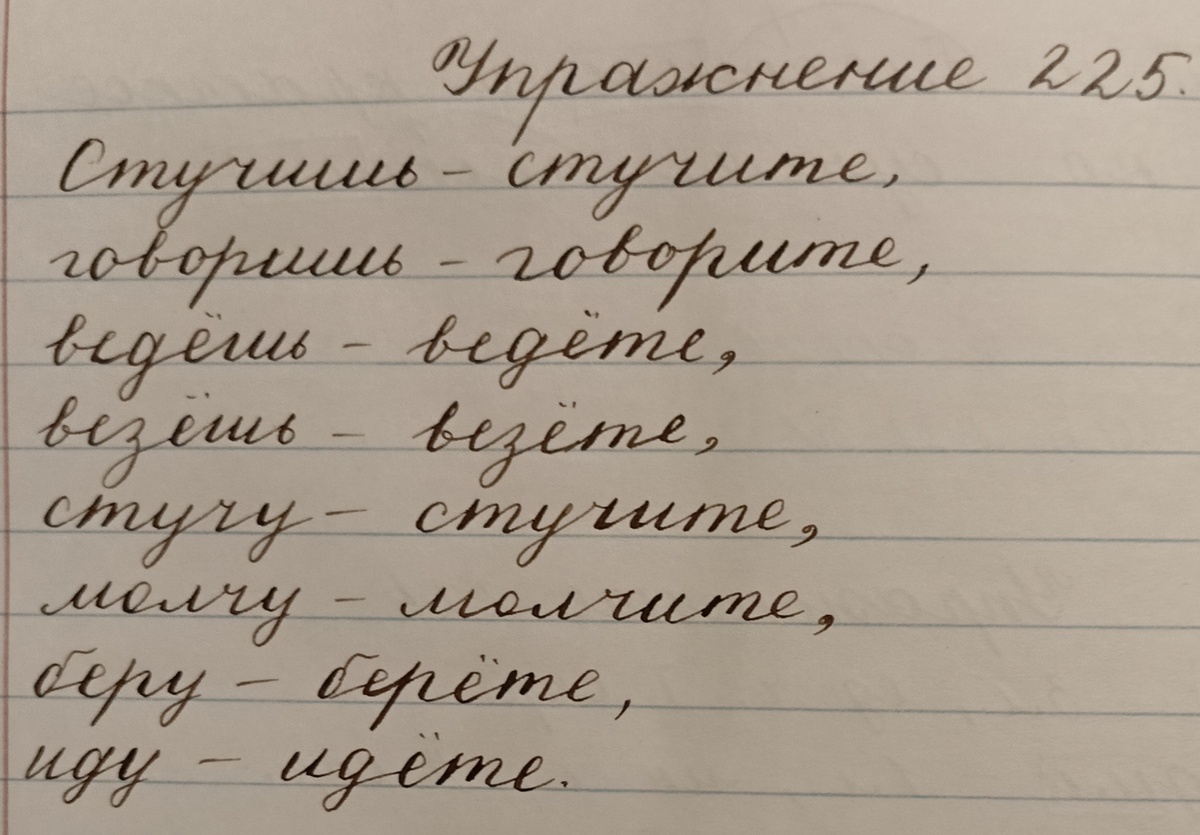 Упражнение 225.
Стучишь – стучите,
говоришь – говорите,
ведёшь – ведёте,
везёшь – везёте,
стучу – стучите,
молчу – молчите,
беру – берёте,
иду – идёте.